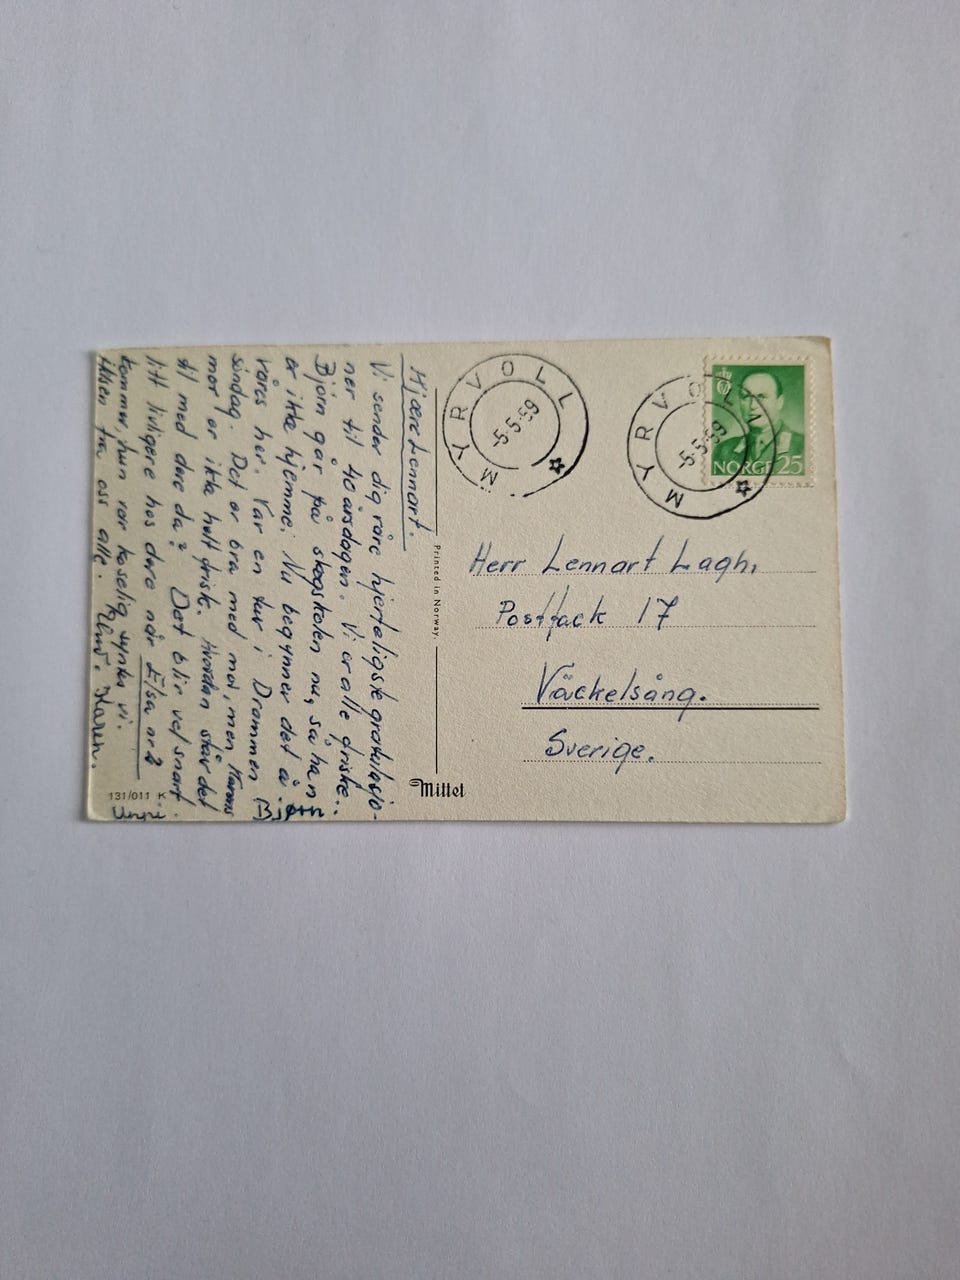 Kjære Lennart.
Vi sender dig våre hjerteligste gratulasjo-
ner til 40 årsdagen. Vi er alle friske.
Bjørn går på skogskolen nu, så han
er ikke hjemme. Nu begynner det å
våres her. Var en tur i Drammen
søndag. Det er bra med moi, men Karens
mor er ikke helt frisk. Hvordan står det
til med dere da? Det blir vel snart
litt livligere hos dere når Elsa nr 2
kommer, hun var koselig synes vi.
Hilsen fra oss alle. Karen.
Bjørn
Unni.
131/011 K
Printed in Norway.
Mittet
MYRVOLL
-5.5.59
MYRVOLL
-5.5.59
NORGE 25
Herr Lennart Lagh,
Postfack 17
Väckelsång.
Sverige.